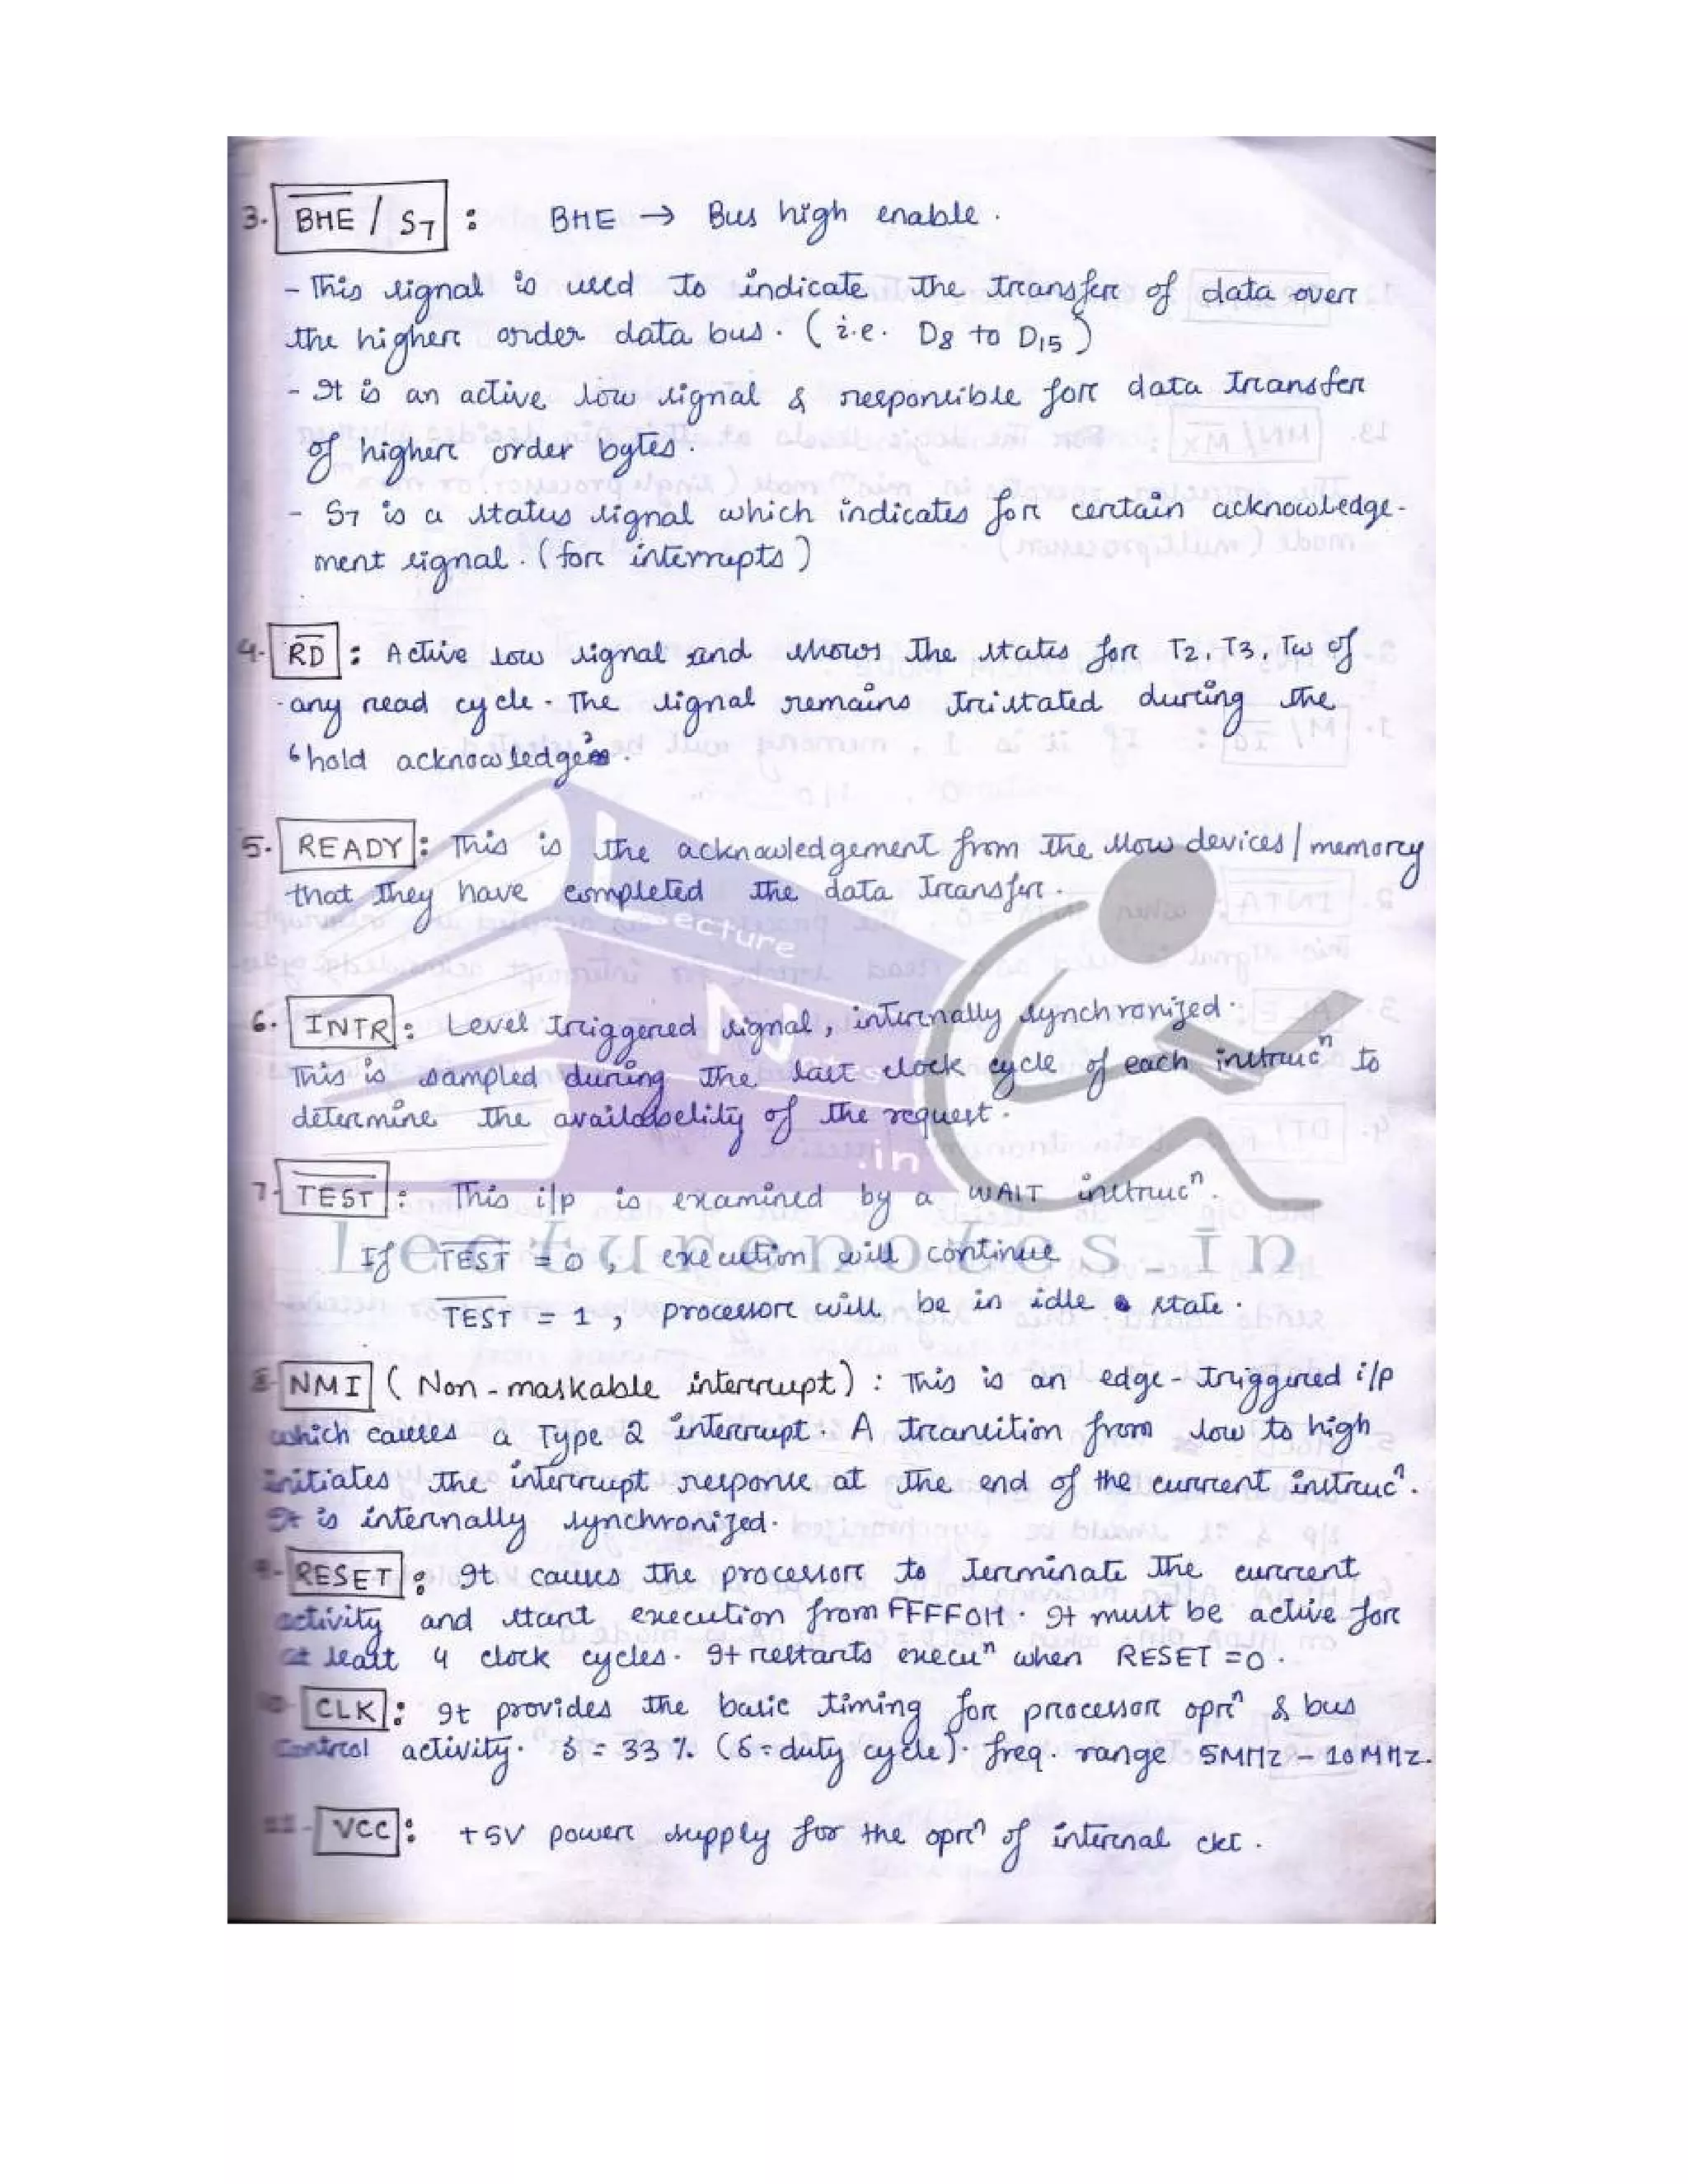 3. B̅H̅E̅ / S7 : BHE → Bus high enable.
- This signal is used to indicate the transfer of data over
the higher order data bus. (i.e. D8 to D15)
- It is an active low signal & responsible for data transfer
of higher order bytes.
- S7 is a status signal which indicates for certain acknowledge-
ment signal. (for interrupts)
4. R̅D̅ : Active low signal and shows the states for T2, T3, Tw of
any read cycle. The signal remains tristated during the
'hold acknowledge'.
5. READY : This is the acknowledgement from the slow devices / memory
that they have completed the data transfer.
6. INTR : Level triggered signal, internally synchronized.
This is sampled during the last clock cycle of each instrucⁿ to
determine the availabelity of the request.
7. T̅E̅S̅T̅ : This i/p is examined by a WAIT instrucⁿ.
If T̅E̅S̅T̅ = 0, execution will continue
T̅E̅S̅T̅ = 1, processor will be in idle state.
8. NMI (Non-maskable interrupt) : This is an edge-triggered i/p
which causes a Type 2 interrupt. A transition from low to high
initiates the interrupt response at the end of the current instrucⁿ.
It is internally synchronized.
9. RESET : It causes the processor to terminate the current
activity and start execution from FFFF0H. It must be active for
at least 4 clock cycles. It restarts execuⁿ when RESET = 0.
10. CLK : It provides the basic timing for processor oprⁿ & bus
control activity. δ = 33 % (δ = duty cycle). freq. range 5MHz - 10MHz.
11. VCC : +5V power supply for the oprⁿ of internal ckt.
Lecture
Notes
.in
Lecturenotes.in